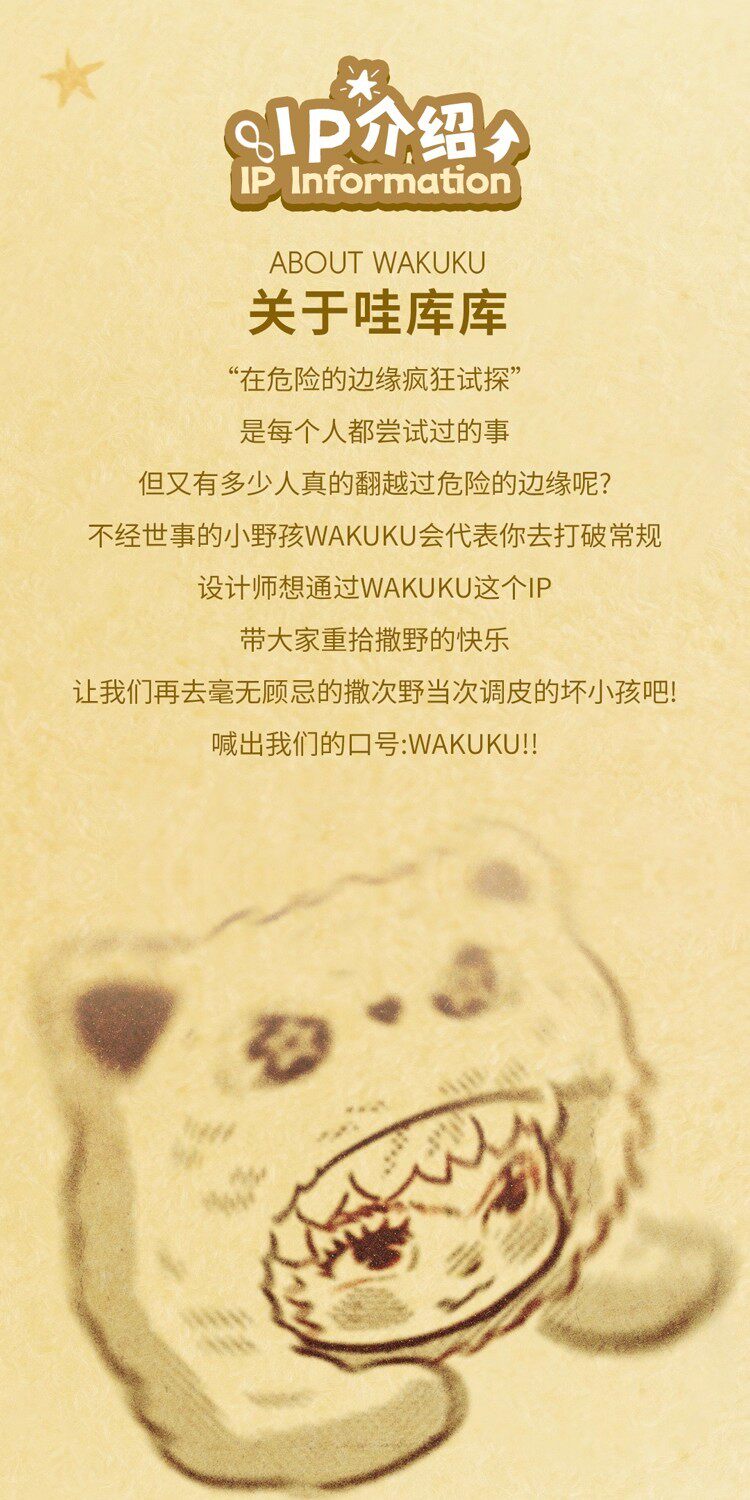 IP介绍
IP Information
ABOUT WAKUKU
关于哇库库
“在危险的边缘疯狂试探”
是每个人都尝试过的事
但又有多少人真的翻越过危险的边缘呢?
不经世事的小野孩WAKUKU会代表你去打破常规
设计师想通过WAKUKU这个IP
带大家重拾撒野的快乐
让我们再去毫无顾忌的撒次野当次调皮的坏小孩吧!
喊出我们的口号:WAKUKU!!